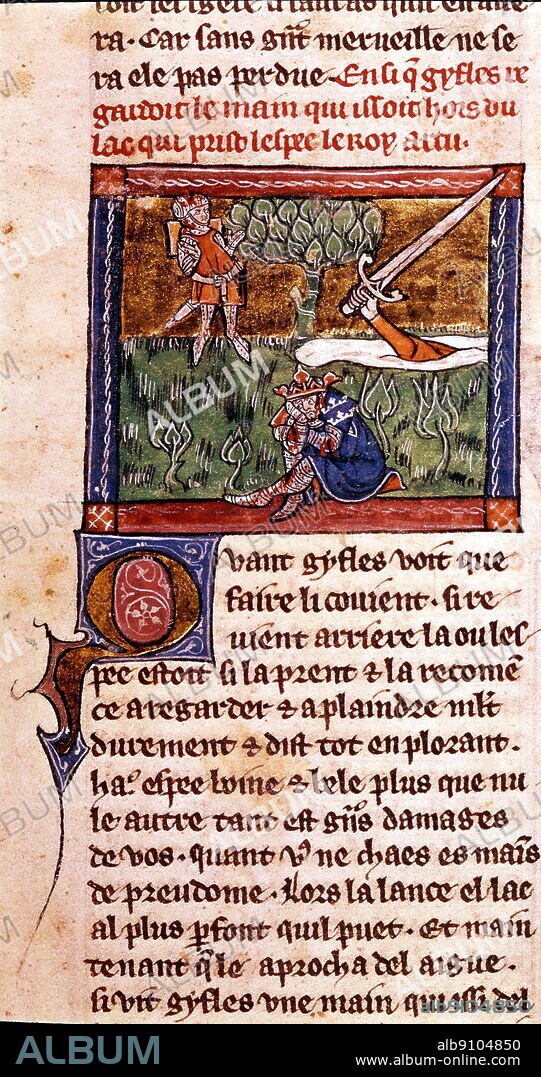 ra. Car sans gñt merueille ne se
ra ele pas perdue. Ensi q̃ gyfles re
gardoit le main qui issoit hors du
lac qui prist lespee le roy artu.
Qvant gyfles voit que
faire li couient. si re
uient arriere la ou les
pee estoit si la prent & la recomē
ce a regarder & a plaindre mlt
durement & dist tot en plorant.
ha. espee boine & bele plus que nu
le autre tant est gñs damages
de vos. quant vꝰ ne chaes es mains
de preudome. Lors la lance el lac
al plus ꝑfont quil puet. Et main
tenant q̃ le aprocha del aigue.
si vit gyfles vne main qui issi del
ALBUM
ab9104850
www.album-online.com